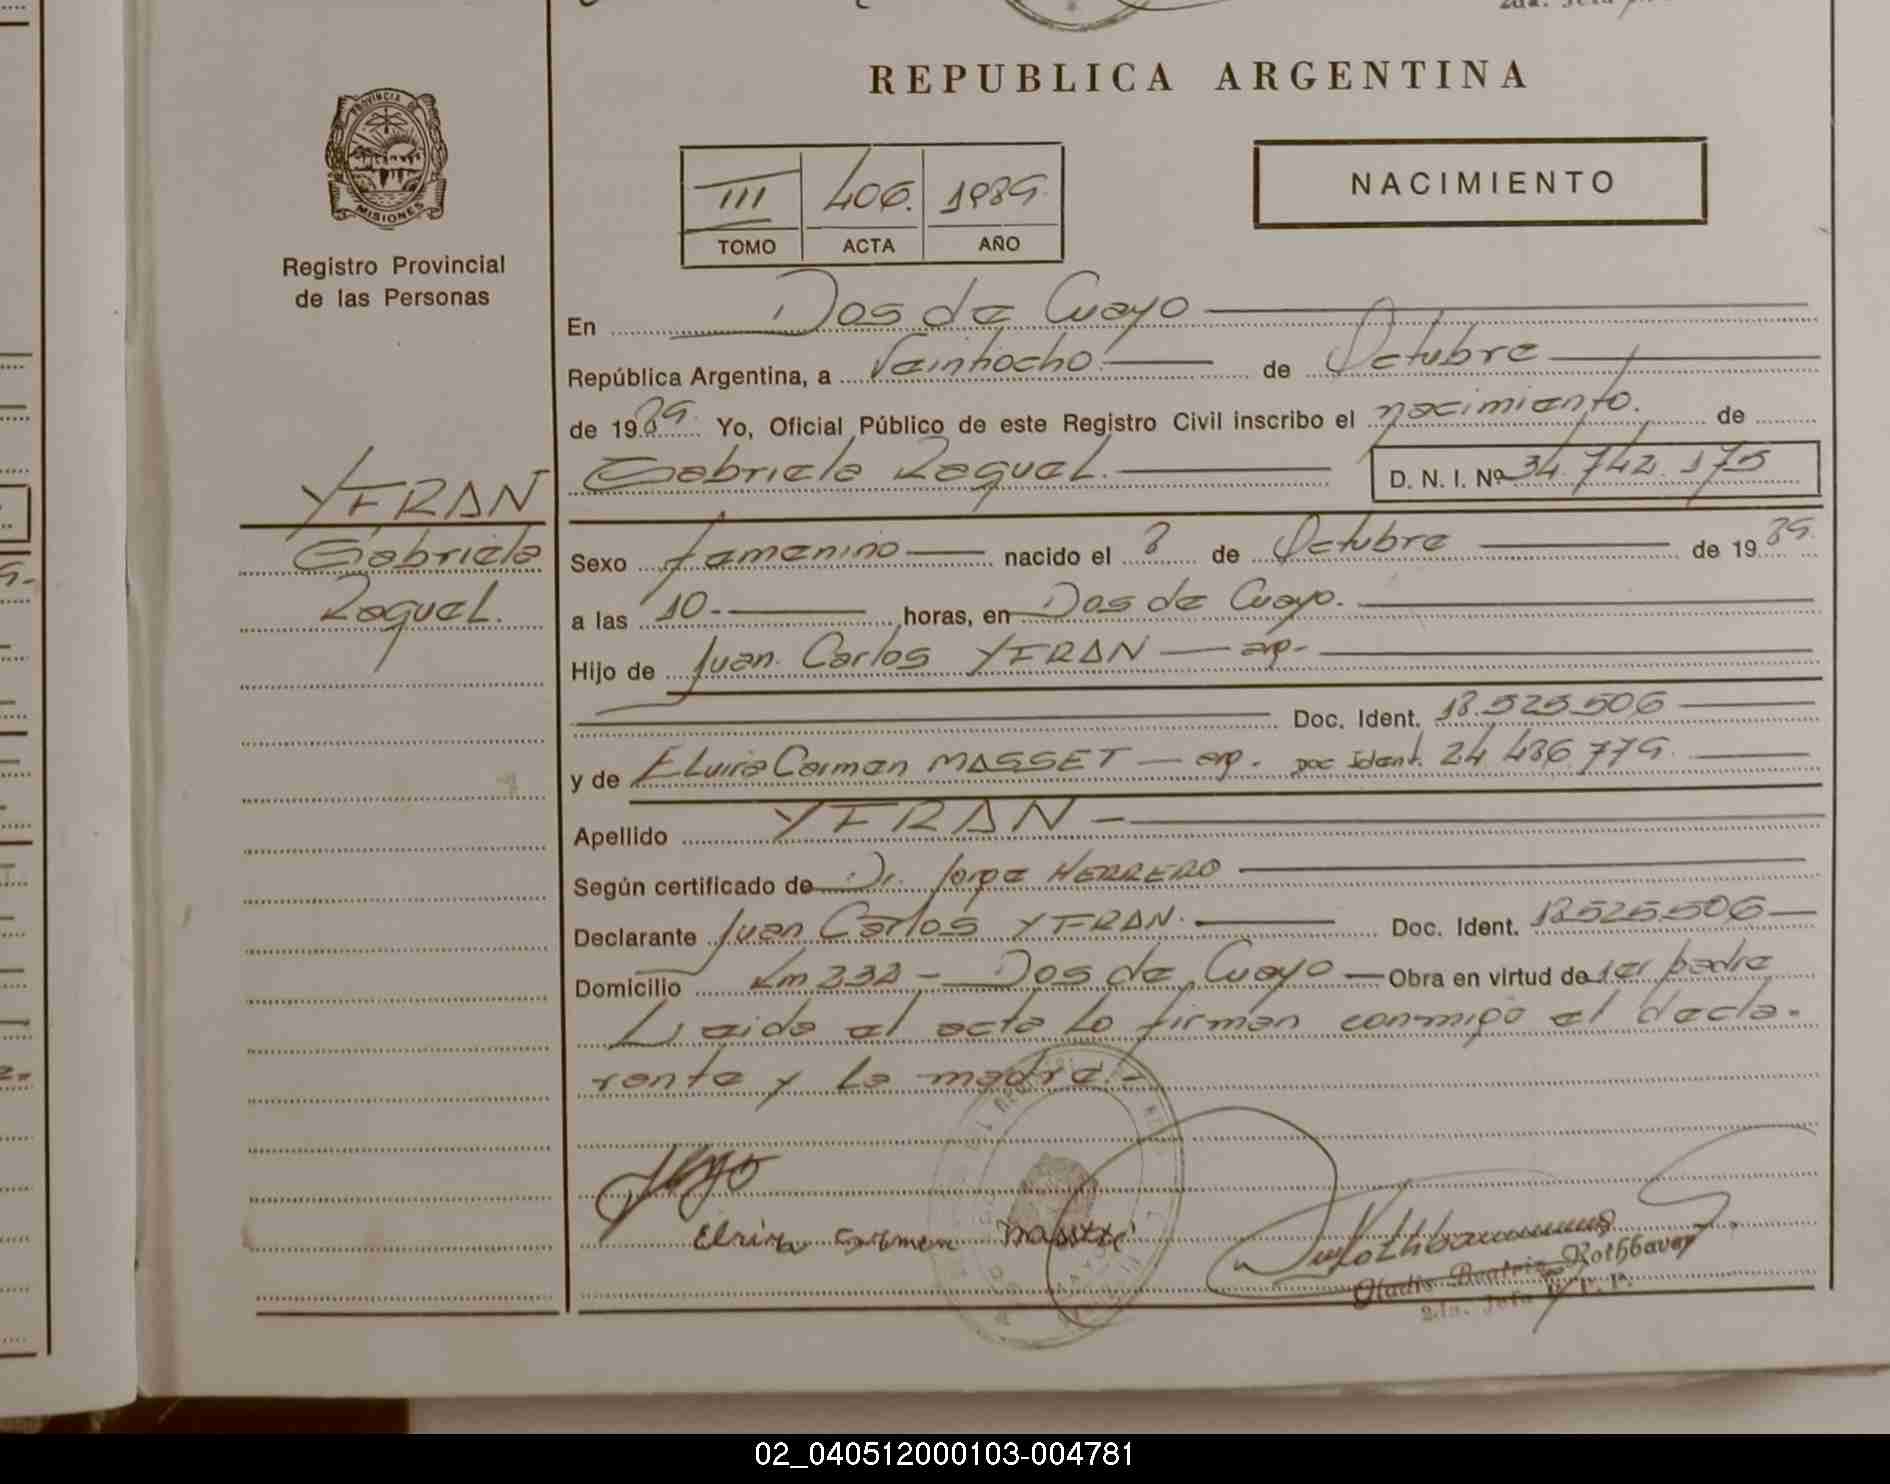 REPUBLICA ARGENTINA
PROVINCIA DE
MISIONES
Registro Provincial
de las Personas
III 406. 1989.
TOMO ACTA AÑO
NACIMIENTO
En Dos de Cuayo
República Argentina, a Veintiocho de Octubre
de 1989. Yo, Oficial Público de este Registro Civil inscribo el nacimiento. de
Gabriela Raquel. D. N. I. Nº 34.742.175
YFRAN
Gabriela
Raquel.
Sexo femenino nacido el 8 de Octubre de 1989.
a las 10.- horas, en Dos de Cuayo.
Hijo de Juan Carlos YFRAN - arg.-
Doc. Ident. 18.525.506
y de Elvira Carmen MASSET - arg. Doc Ident. 24.436.779.
Apellido YFRAN -
Según certificado de Dr. Jorge HERRERO
Declarante Juan Carlos YFRAN. Doc. Ident. 18.525.506
Domicilio Km 232 - Dos de Cuayo - Obra en virtud de ser padre
Leida el acta lo firman conmigo el decla-
rante y la madre.-
Elvira Carmen
Gladis Beatriz Rothbauer
2da. Jefa R. P. P.
02_040512000103-004781